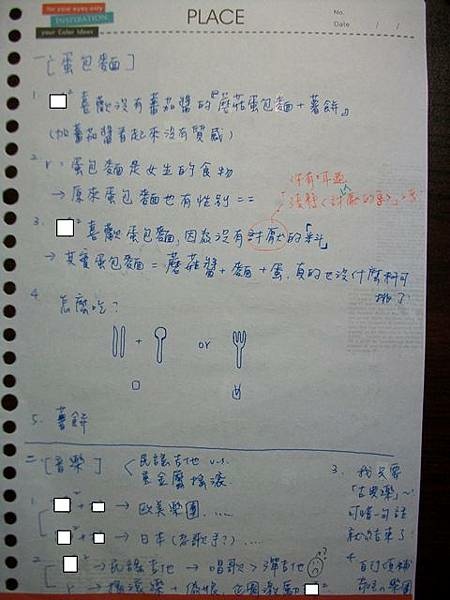 for your eyes only
INSPIRATION
your Color Ideas
PLACE
No.
Date / /
一[蛋包麵]
1. 喜歡沒有蕃茄醬的『蘑菇蛋包麵+薯餅』
(加蕃茄醬看起來沒有質感)
2. r: 蛋包麵是女生的食物
→原來蛋包麵也有性別==
3. 喜歡蛋包麵,因為沒有討厭的「料」
(討厭的
→ 蛋包麵=蘑菇醬+麵+蛋,真的也沒什麼料可
挑了
4. 怎麼吃?
+ or
5. 薯餅
二、[音樂] < 民謠吉他 v.s.
重金屬搖滾
1. + → 歐美樂團.....
+ → 日本(各歌手?)....
2. →民謠吉他 → 唱歌>彈吉他 ?
r →搖滾樂+
3. 我只要
「古典樂」~
可惜一句話
就結束了
4.